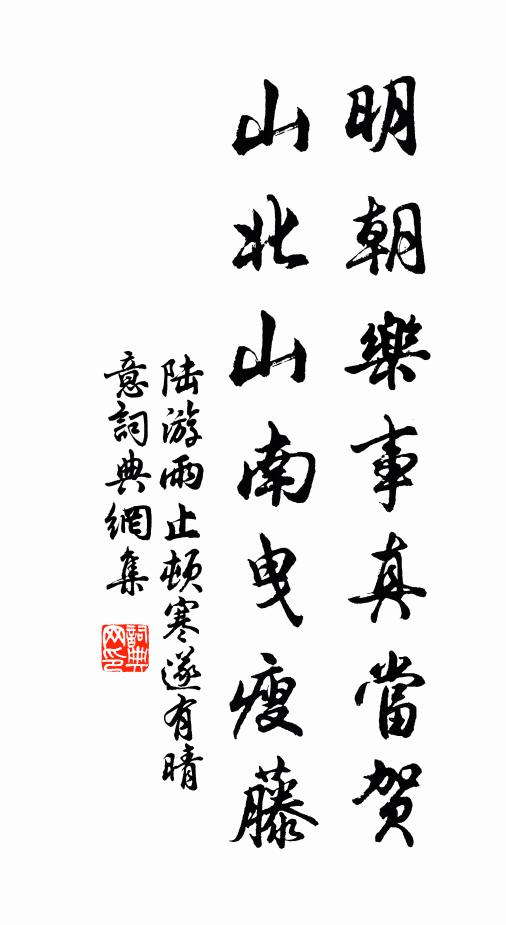 明朝樂事真當賀
山北山南曳瘦藤
陆游雨止頓寒遂有晴
意詞典網集
詞典
网印